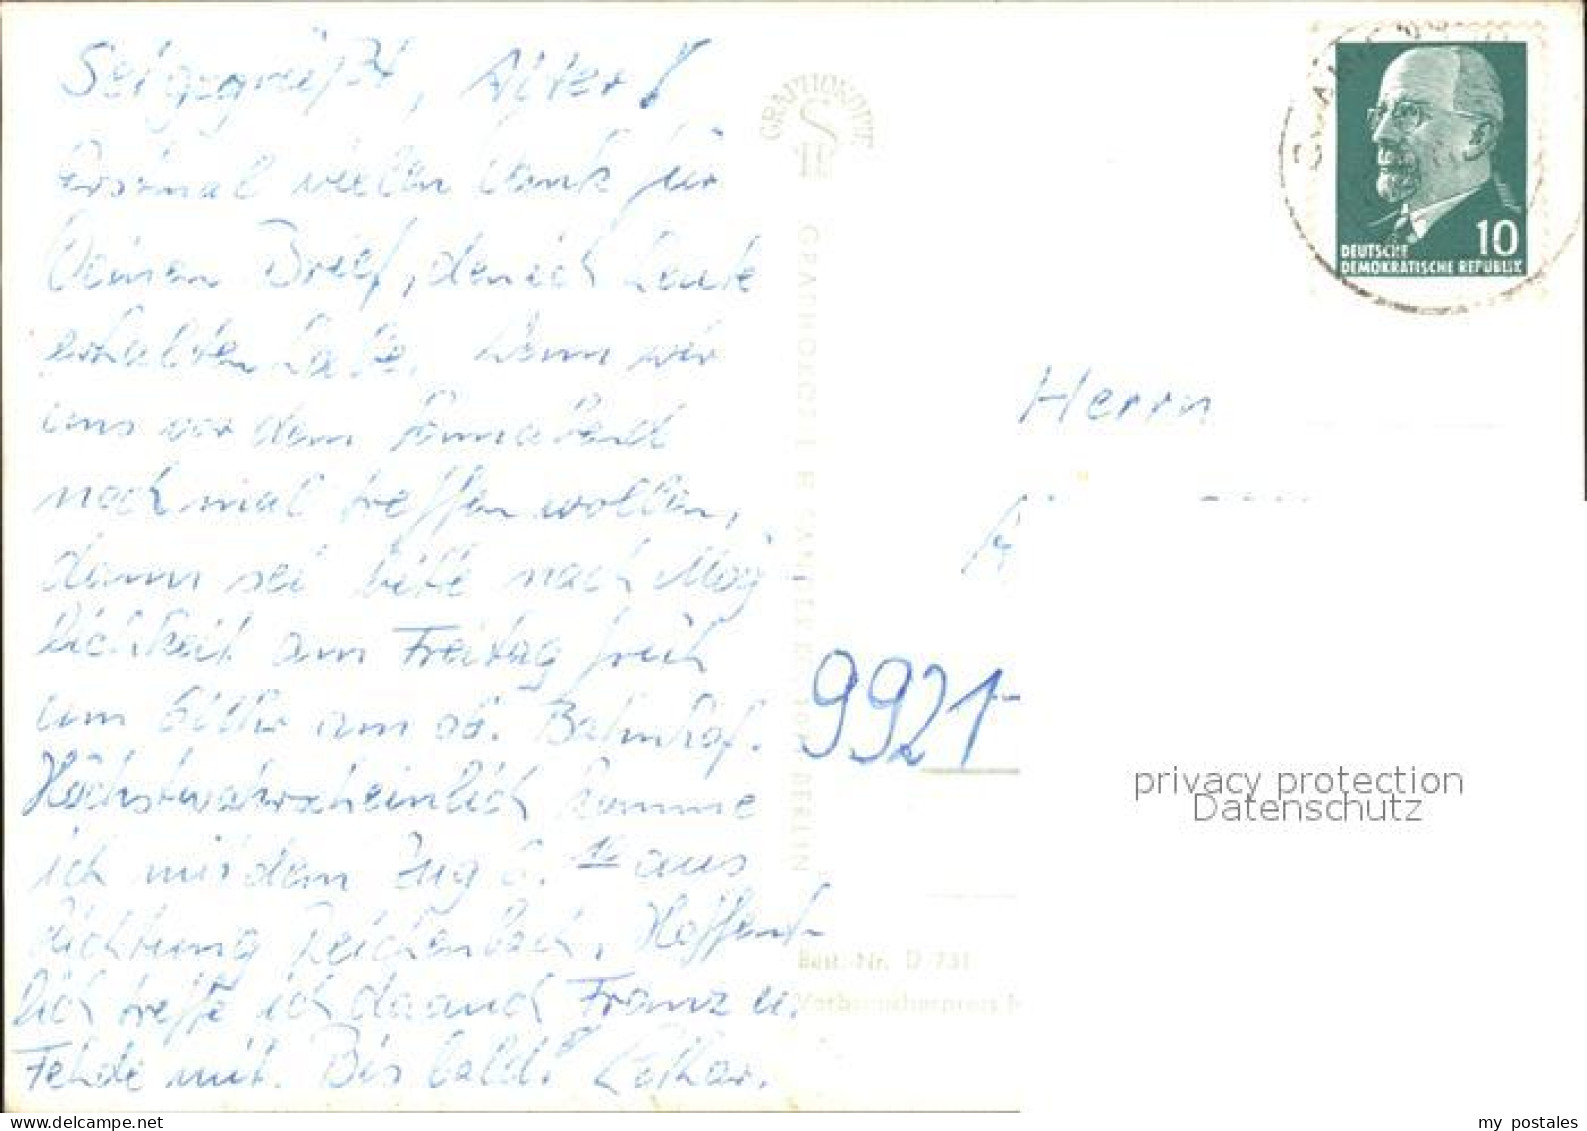 Sei gegrüßt, Alter!
Erstmal vielen Dank für
Deinen Brief, den ich heute
erhalten habe. Wenn wir
uns vor dem Sonnabend
noch mal treffen wollen,
dann sei bitte nach Mög
lichkeit am Freitag früh
um 6 Uhr am ob. Bahnhof.
Höchstwahrscheinlich komme
ich mit dem Zug 6. 16 aus
Richtung Reichenbach. Hoffent-
lich treffe ich da auch Franz u.
Fehde mit. Bis bald! Lothar.
GRAPHOKOPIE
GRAPHOKOPIE H. SANDER KG, BERLIN
Best.-Nr. D 731
Verbraucherpreis
DEUTSCHE
DEMOKRATISCHE REPUBLIK
10
Herrn
9921
privacy protection
Datenschutz
my postales